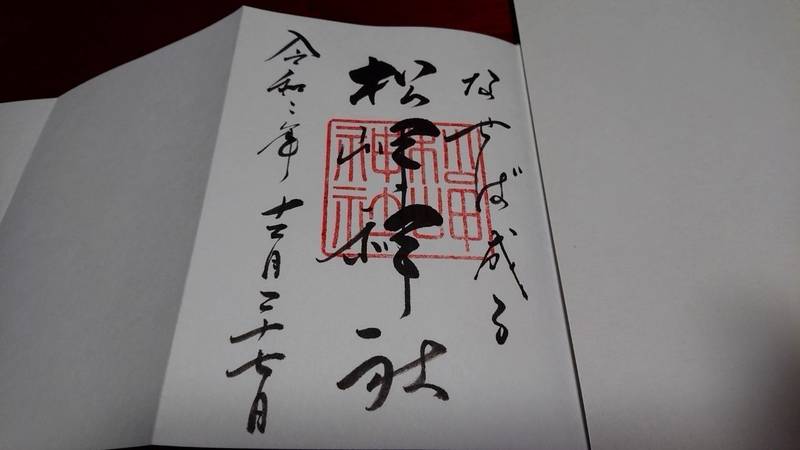 なせば成る
松岬神社
松岬
神社
令和二年 十二月二十七日